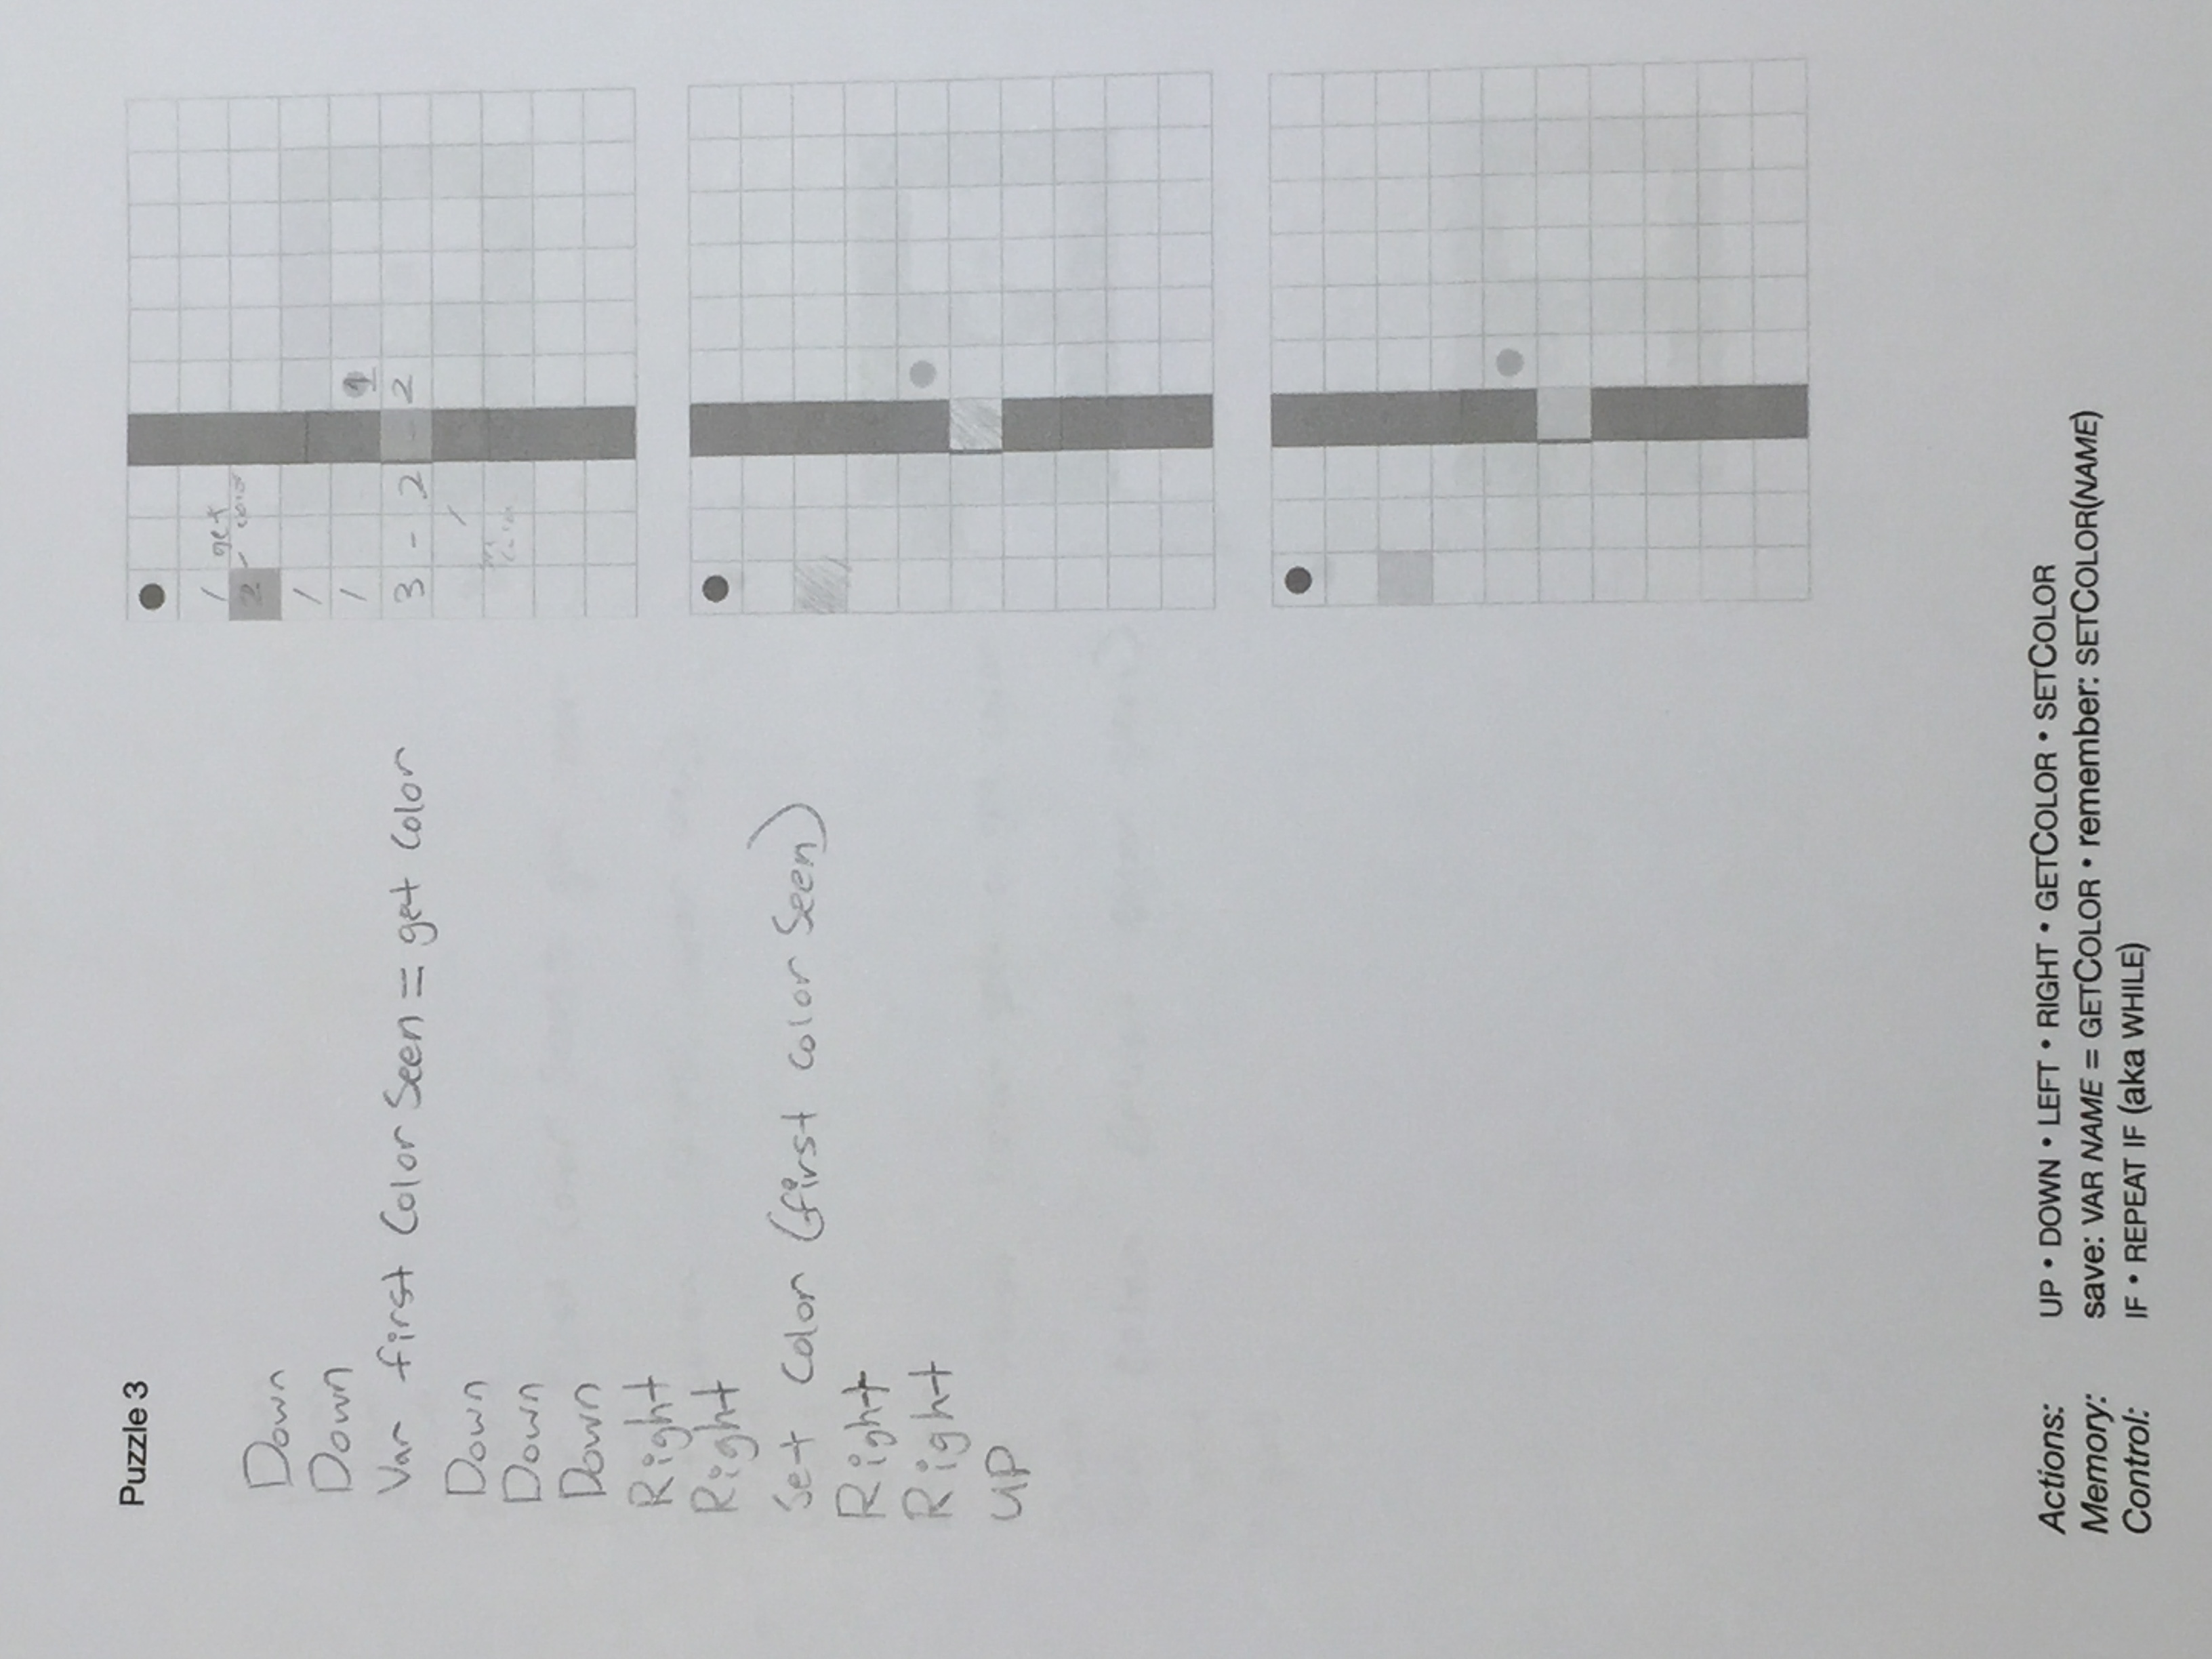 Puzzle 3
Down
Down
Var first Color Seen = get Color
Down
Down
Down
Right
Right
Set Color (first color Seen)
Right
Right
UP
/ get
2 - color
/
/ 1
3 - 2 - 2
/
Actions: UP • DOWN • LEFT • RIGHT • GETCOLOR • SETCOLOR
Memory: save: VAR NAME = GETCOLOR • remember: SETCOLOR(NAME)
Control: IF • REPEAT IF (aka WHILE)